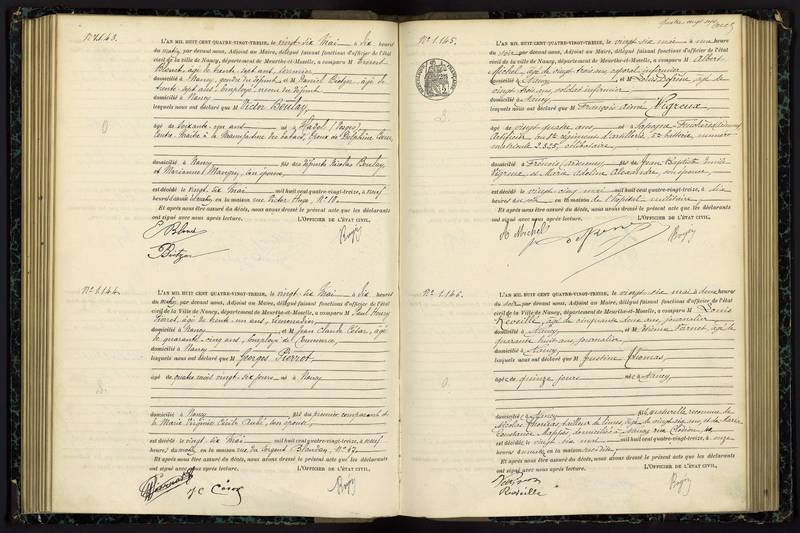 N° 1.143.
L'AN MIL HUIT CENT QUATRE-VINGT-TREIZE, le vingt-six Mai à dix heures
du matin, par devant nous, Adjoint au Maire, délégué faisant fonctions d'officier de l'état
civil de la Ville de Nancy, département de Meurthe-et-Moselle, a comparu M Ernest
âgé de trente sept ans,
domicilié à Nancy, gendre du défunt et M Daniel âgé de
trente sept ans, employé, neveu du défunt
domicilié à Nancy
lesquels nous ont déclaré que M Victor Boulay,
âgé de soixante ans né à Hadol (Vosges)
Contre Maître à la Manufacture des tabacs, Epoux de Delphine
domicilié à Nancy fils des défunts Nicolas Boulay
et Marianne son épouse,
est décédé le vingt six Mai mil huit cent quatre-vingt-treize, à neuf
heures du matin, en la maison rue Victor Hugo, N° 18.
Et après nous être assuré du décès, nous avons dressé le présent acte que les déclarants
ont signé avec nous après lecture. L'OFFICIER DE L'ÉTAT CIVIL,
N° 1.144.
L'AN MIL HUIT CENT QUATRE-VINGT-TREIZE, le vingt-six Mai à dix heures
du matin, par devant nous, Adjoint au Maire, délégué faisant fonctions d'officier de l'état
civil de la Ville de Nancy, département de Meurthe-et-Moselle, a comparu M Paul Henry
Pierrot, âgé de trente un ans, limonadier,
domicilié à Nancy et M Jean Claude César, âgé
de quarante cinq ans, employé de Commerce,
domicilié à Nancy
lesquels nous ont déclaré que M Georges Pierrot
âgé de quatre mois vingt-six jours né à Nancy
domicilié à Nancy fils du premier comparant et
de Marie Virginie Cécile son épouse,
est décédé le vingt six Mai mil huit cent quatre-vingt-treize, à neuf
heures du matin, en la maison rue du Sergent Blandan, N° 67.
Et après nous être assuré du décès, nous avons dressé le présent acte que les déclarants
ont signé avec nous après lecture. L'OFFICIER DE L'ÉTAT CIVIL,
J C César
N° 1.145.
L'AN MIL HUIT CENT QUATRE-VINGT-TREIZE, le vingt-six mai à une heure
du soir par devant nous, Adjoint au Maire, délégué faisant fonctions d'officier de l'état
civil de la ville de Nancy, département de Meurthe-et-Moselle, a comparu M Albert
Michel, âgé de vingt-trois ans caporal infirmier
domicilié à Nancy, et M âgé de
vingt trois ans soldat infirmier
domicilié à Nancy
lesquels nous ont déclaré que M François Aimé Vigreux
âgé de vingt-quatre ans né à
Artificier au régiment d'artillerie, 5e batterie numéro
matricule 2325, célibataire,
domicilié à fils de Jean Baptiste Emile
Vigreux et Maria Adeline Alexandre, son épouse,
est décédé le vingt cinq mai mil huit cent quatre-vingt-treize, à dix
heures du soir en la maison de l'hôpital militaire
Et après nous être assuré du décès, nous avons dressé le présent acte que les déclarants
ont signé avec nous après lecture. L'OFFICIER DE L'ÉTAT CIVIL,
A Michel
N° 1.146.
L'AN MIL HUIT CENT QUATRE-VINGT-TREIZE, le vingt-six mai à deux heures
du soir par devant nous, Adjoint au Maire, délégué faisant fonctions d'officier de l'état
civil de la Ville de Nancy, département de Meurthe-et-Moselle, a comparu M Louis
Reveillé, âgé de cinquante ans, journalier
domicilié à Nancy et M Etienne âgé de
quarante huit ans, journalier
domicilié à Nancy
lesquels nous ont déclaré que M Justine Thomas
âgée de quinze jours née à Nancy,
domiciliée à Nancy fille naturelle reconnue de
Nicolas Thomas, tailleur de limes, âgé de vingt-six ans, et de Marie
Constance domiciliés à Nancy rue
est décédée le vingt six mai mil huit cent quatre-vingt-treize, à onze
heures du matin en la maison
Et après nous être assuré du décès, nous avons dressé le présent acte que les déclarants
ont signé avec nous après lecture. L'OFFICIER DE L'ÉTAT CIVIL,
Reveille